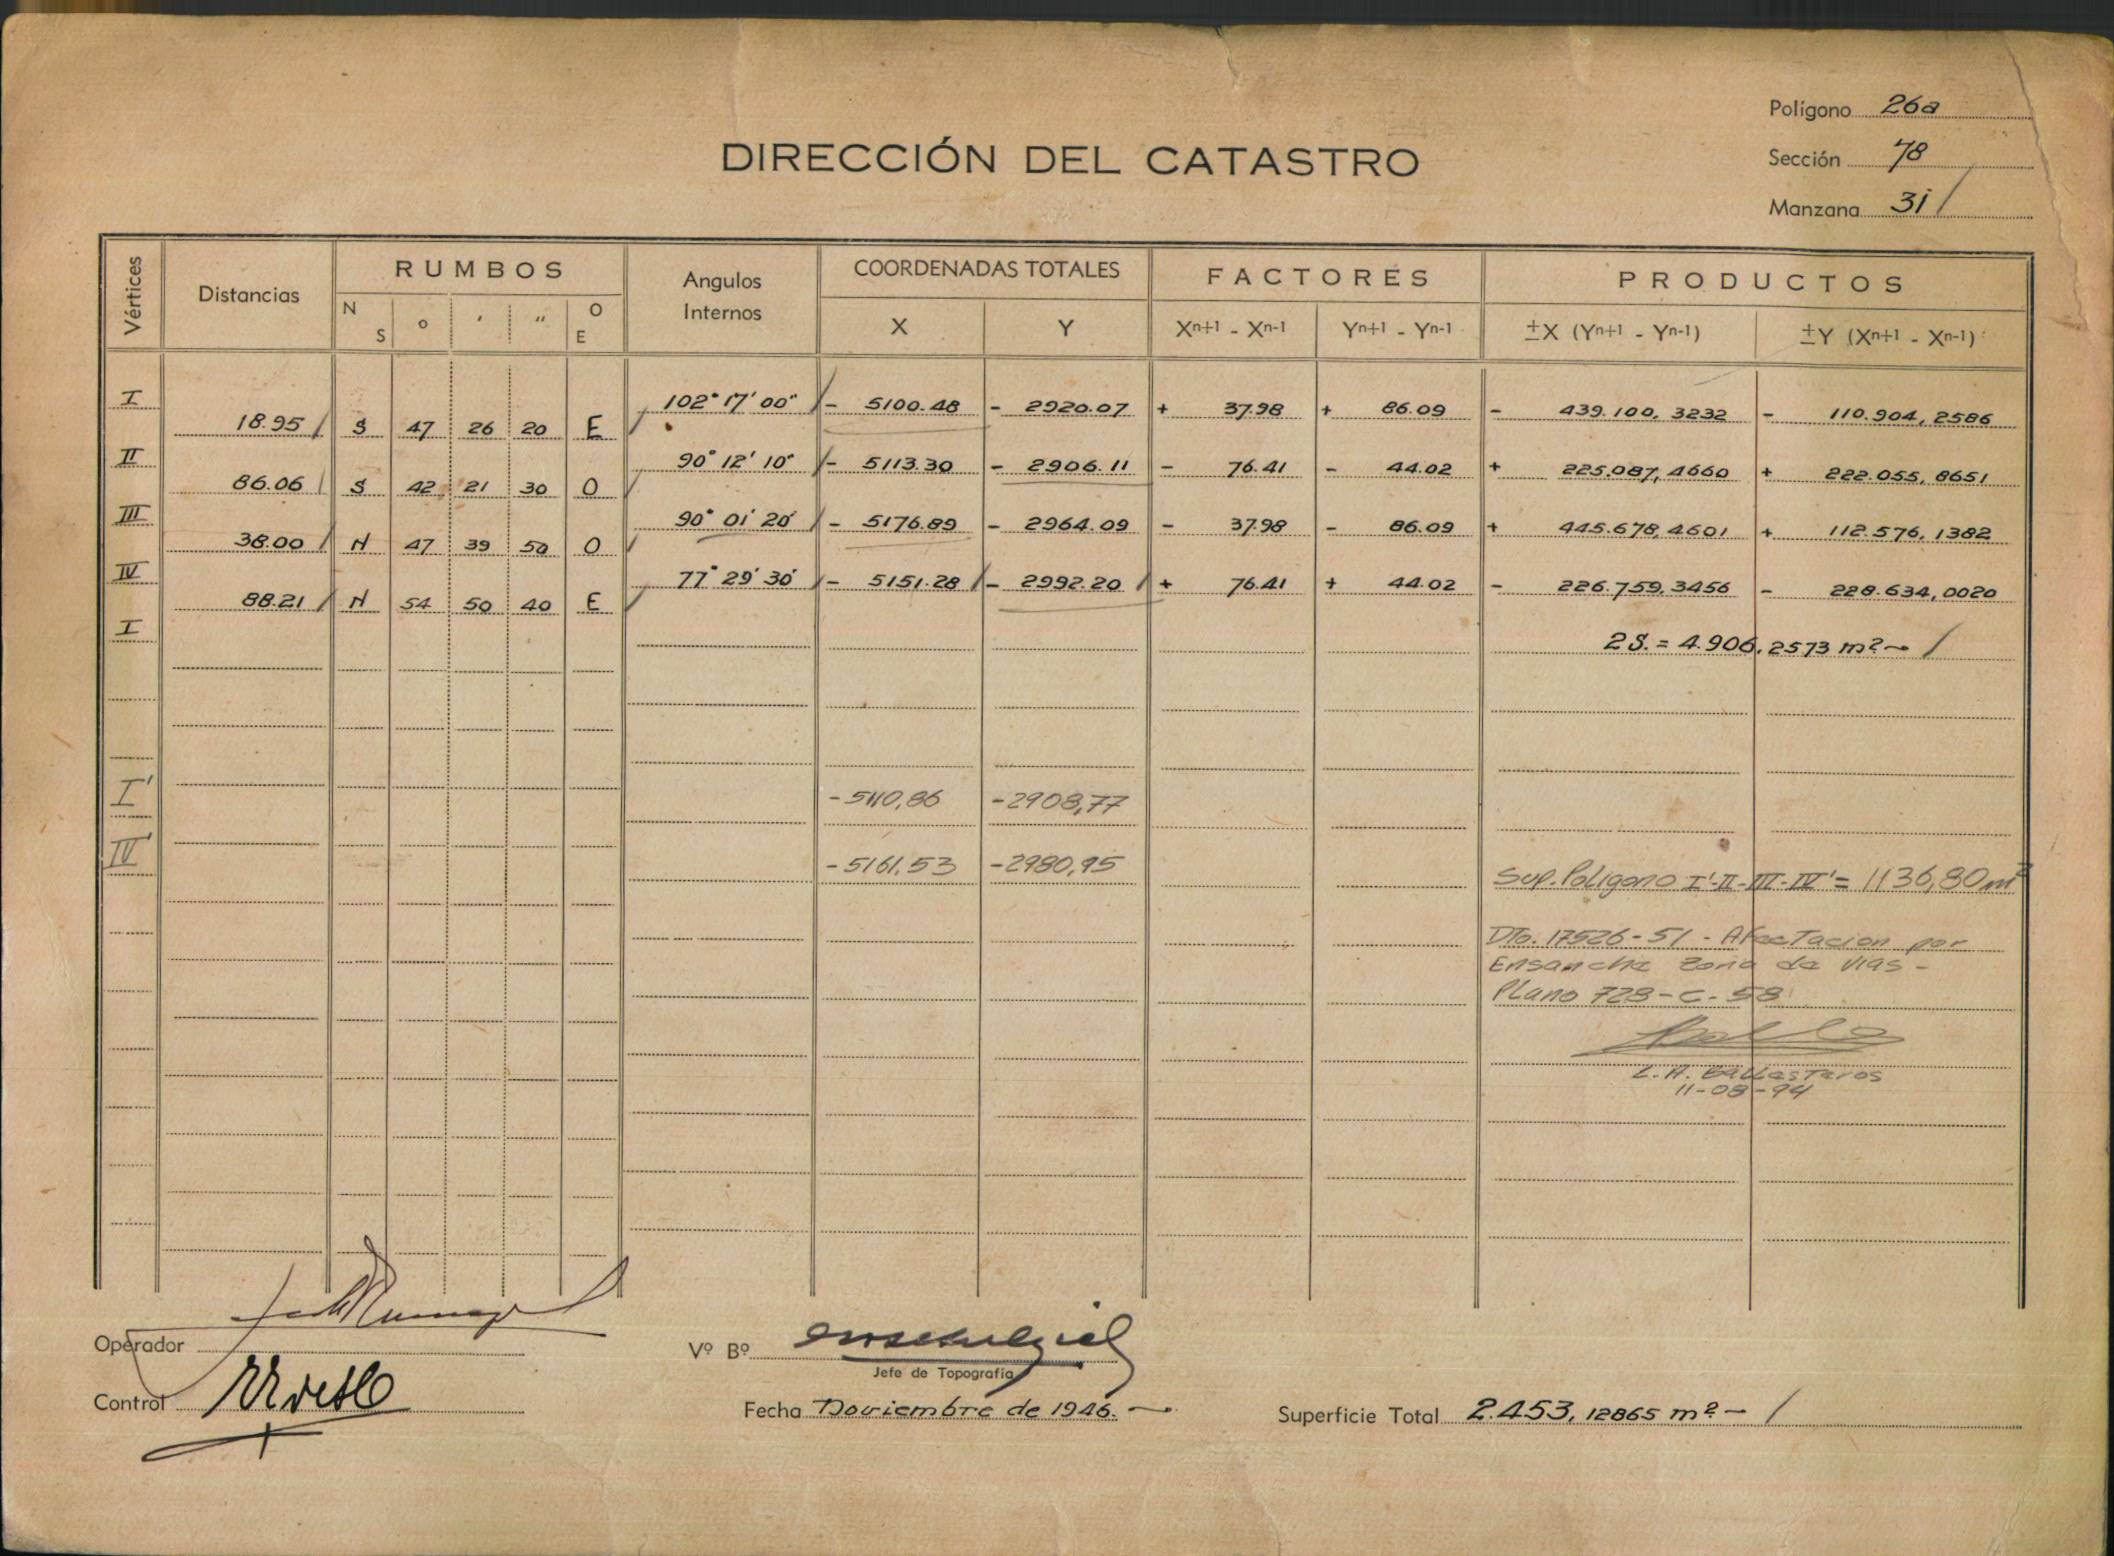 Polígono 26a
DIRECCIÓN DEL CATASTRO
Sección 78
Manzana 3i /
Vértices Distancias RUMBOS Angulos Internos COORDENADAS TOTALES FACTORES PRODUCTOS
N S o ' " O E X Y Xn+1 - Xn-1 Yn+1 - Yn-1 ±X (Yn+1 - Yn-1) ±Y (Xn+1 - Xn-1)
I 102° 17' 00" - 5100.48 - 2920.07 + 37.98 + 86.09 - 439.100,3232 - 110.904,2586
18.95 S 47 26 20 E
II 90° 12' 10" - 5113.30 - 2906.11 - 76.41 - 44.02 + 225.087,4660 + 222.055,8651
86.06 S 42 21 30 O
III 90° 01' 20' - 5176.89 - 2964.09 - 37.98 - 86.09 + 445.678,4601 + 112.576,1382
38.00 N 47 39 50 O
IV 77° 29' 30' - 5151.28 - 2992.20 + 76.41 + 44.02 - 226.759,3456 - 228.634,0020
88.21 N 54 50 40 E
I
2S. = 4.906,2573 m² /
I' -5110,86 -2908,77
IV' -5161,53 -2980,95
Sup. Poligono I'-II-III-IV' = 1136,80 m²
Dto. 17526-51 - Afectacion por
Ensanche Zona de vias -
Plano 728-C-58
L.A. Ballesteros
11-08-94
Operador
Vº Bº
Jefe de Topografía
Control
Fecha Noviembre de 1946.
Superficie Total 2.453,12865 m² - /